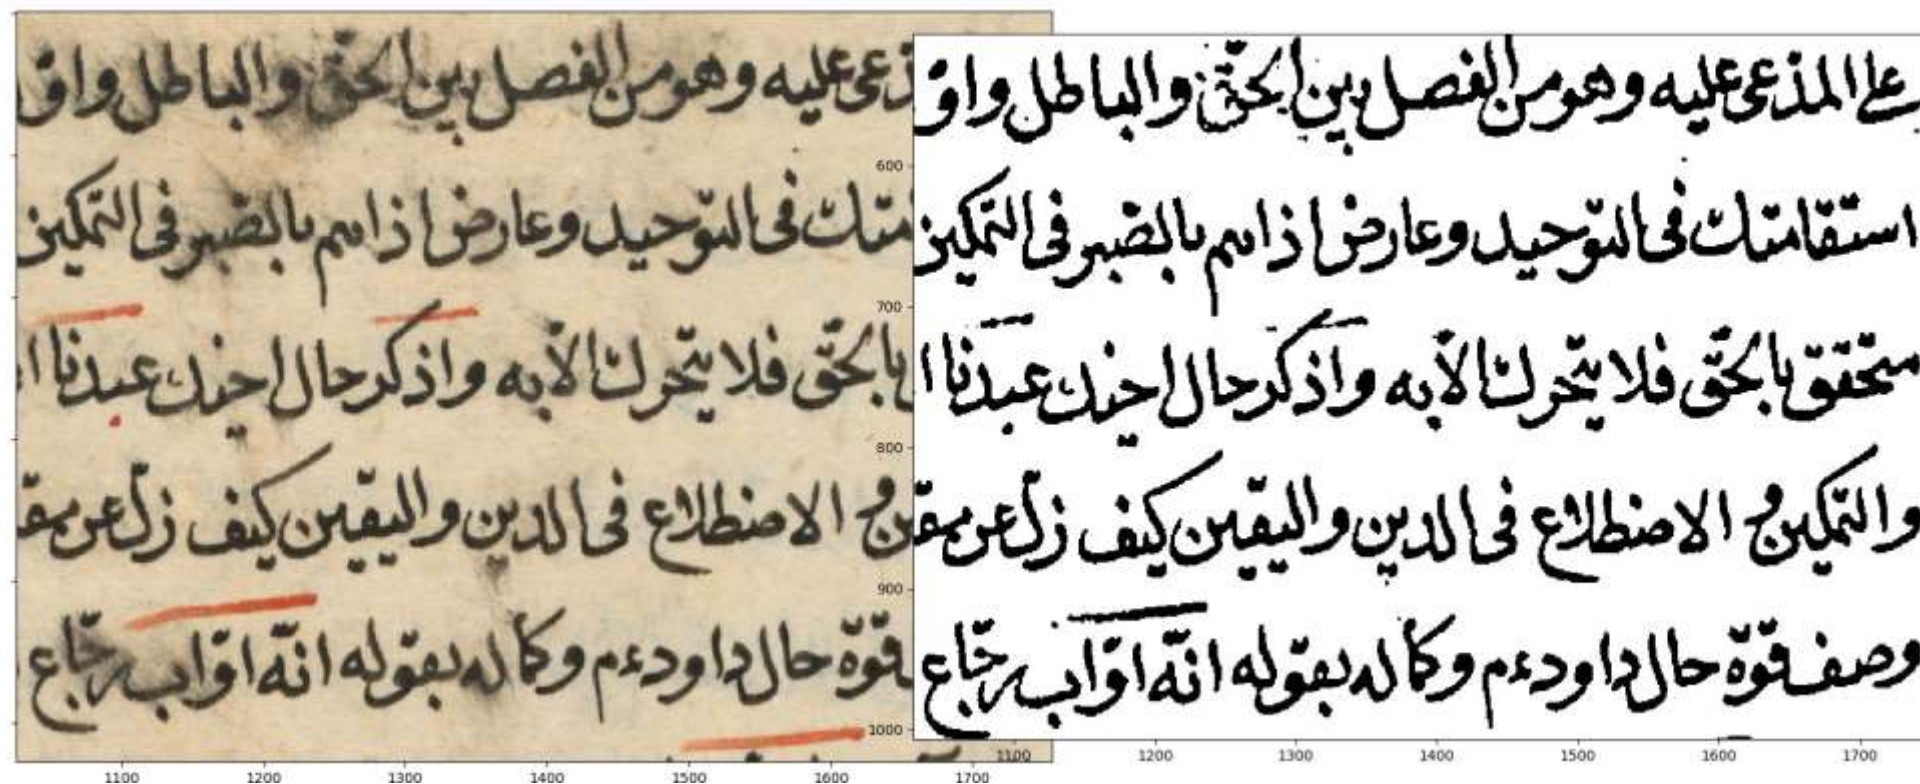 عى عليه وهو من الفصل بين الحقّ والباطل واق
متك فى التوحيد وعارض اذاهم بالصّبر فى التمكين
بالحقّ فلا يتحّرك الّا به واذكر حال اخيك عبدنا ا
الاضطلاع فى الدين واليقين كيف زلّ عن مق
قوّة حال داود ءم وكماله بقوله انّه اوّاب رجّاع
1100 1200 1300 1400 1500 1600 1700
على المدعى عليه وهو من الفصل بين الحقّ والباطل واق
استقامتك فى التوحيد وعارض اذاهم بالصّبر فى التمكين
متحقق بالحقّ فلا يتحّرك الّا به واذكر حال اخيك عبدنا ا
والتمكين و الاضطلاع فى الدين واليقين كيف زلّ عن مق
وصف قوّة حال داود ءم وكماله بقوله انّه اوّاب رجّاع
600
700
800
900
1000
1100 1200 1300 1400 1500 1600 1700